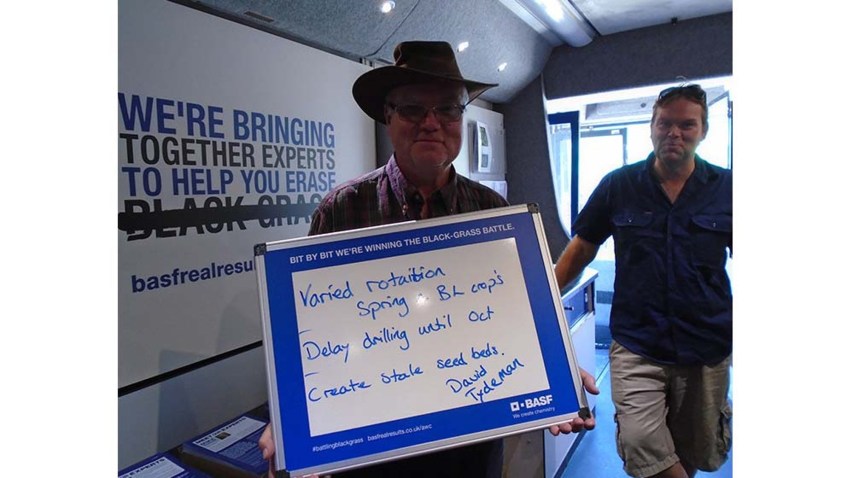 WE'RE BRINGING
TOGETHER EXPERTS
TO HELP YOU ERASE
BLACK-GRASS
basfrealresults
BIT BY BIT WE'RE WINNING THE BLACK-GRASS BATTLE.
Varied rotaition
Spring + BL crop's
- Delay drilling until Oct
- Create stale seed beds.
David
Tydeman
BASF
We create chemistry
#battlingblackgrass basfrealresults.co.uk/awc
BASF
EXPERTS